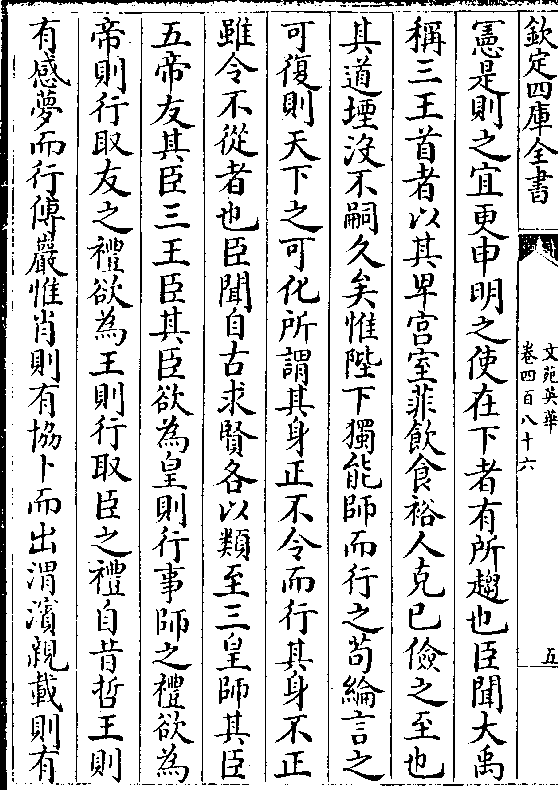 欽定四庫全書
文苑英華
卷四百八十六
五
憲是則之宜更申明之使在下者有所趨也臣聞大禹
稱三王首者以其卑宮室菲飲食裕人克己儉之至也
其道堙沒不嗣久矣惟陛下獨能師而行之苟綸言之
可復則天下之可化所謂其身正不令而行其身不正
雖令不從者也臣聞自古求賢各以類至三皇師其臣
五帝友其臣三王臣其臣欲為皇則行事師之禮欲為
帝則行取友之禮欲為王則行取臣之禮自昔哲王則
有感夢而行傅巖惟肖則有協卜而出渭濱親載則有